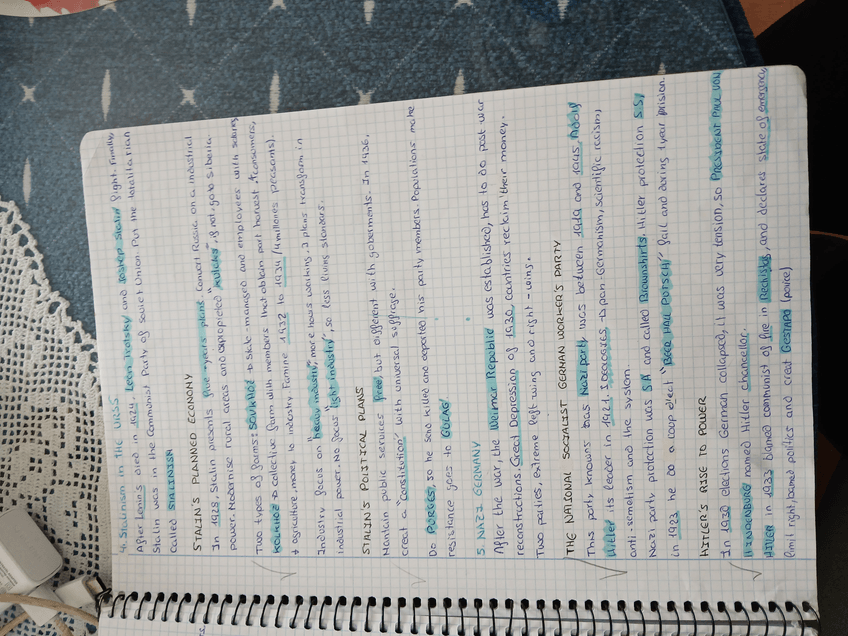 4. Stalinism in the URSS
After Lenins died in 1924, Leon Trotsky and Joshep Stalin fight. Finally,
Stalin was in the Communist Party of Soviet Union. Put the totalitarian
called STALINISM
STALIN'S PLANNED ECONOMY
In 1928, Stalin presents five-years plans. Convert Rusia on a industrial
power. Modernise rural areas and expropieted "kulaks", if not, go to Siberia.
Two types of farms: SOVKHOZ → state-managed and employees with salary
KOLKHOZ → collective farm with members that obtain part harvest + consumers,
+ agriculture, money to industry. Famine 1932 to 1934 (4 millones peasants).
Industry focus on "heavy industry", more hours working, 2 plans transform in
industrial power. No focus "light industry", so less living standers.
STALIN'S POLITICAL PLANS
Mantain public services free but different with goberments. In 1936,
creat a "constitution" with universal suffrage.
Do PURGES, so he send killed and deported his party members. Populations make
resistance goes to GULAG
5. NAZI GERMANY
After the war, the Weimar Republic was established, has to do post war
reconstructions. Great Depression of 1930, countries reclaim their money.
Two parties, extreme left-wing and right-wing.
THE NATIONAL SOCIALIST GERMAN WORKER'S PARTY
This party knowns has Nazi party was between 1919 and 1945, Adolf
Hitler its leader in 1921. IDEOLOGIES → pan-Germanism, scientific racism,
anti-semetism and the system.
Nazi party protection was SA and called Brownshirts. Hitler protection S.S,
in 1923 he do a coup d'ect "BEER HALL POTSCH" fail and during 1 year prision.
HITLER'S RISE TO POWER
In 1930 elections German collapsed, it was very tension, so PRESIDENT PAUL VON
HINDENBURG named Hitler chancellor.
HITLER in 1933 blamed communist of fire in Reichistag, and declares state of emergency,
limit right, banned politics and creat GESTAPO (police)